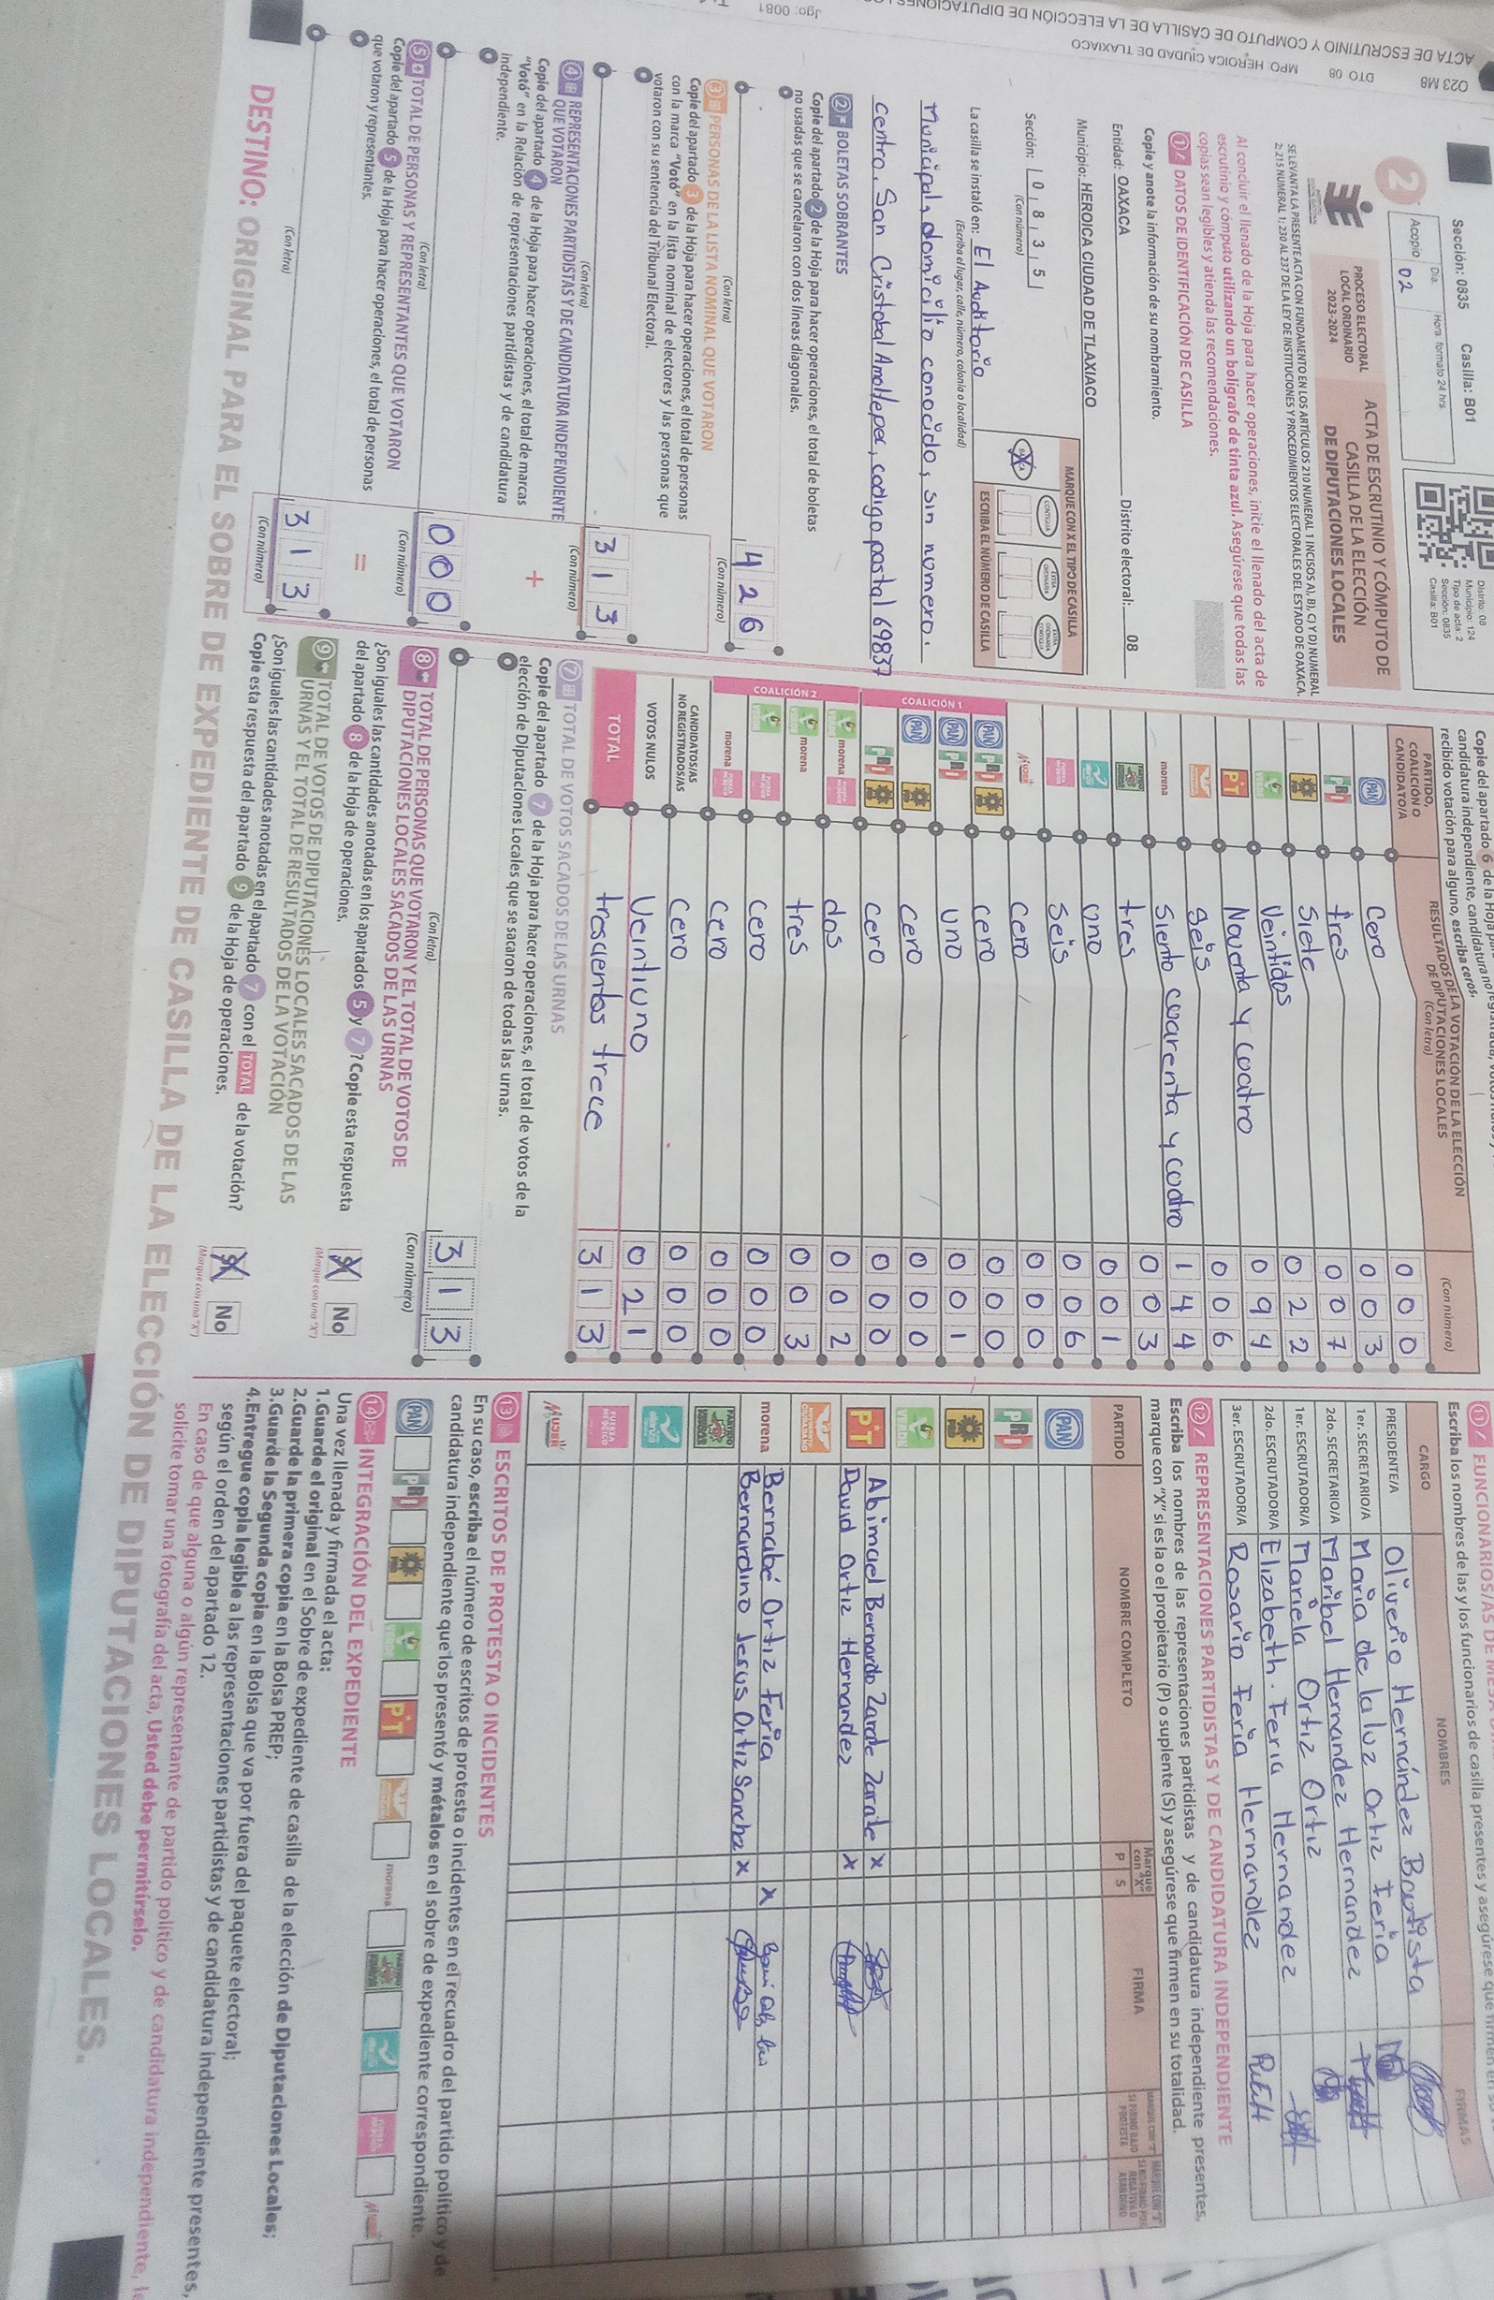 ACTA DE ESCRUTINIO Y CÓMPUTO DE CASILLA DE LA ELECCIÓN DE DIPUTACIONES
023 M8 DTO 08 MPO: HEROICA CIUDAD DE TLAXIACO
Jgo: 0081
Sección: 0835 Casilla: B01
Distrito: 08
Municipio: 124
Tipo de acta: 2
Sección: 0835
Casilla: B01
2
Acopio
Día:
Hora: formato 24 hrs
02
PROCESO ELECTORAL
LOCAL ORDINARIO
2023-2024
ACTA DE ESCRUTINIO Y CÓMPUTO DE
CASILLA DE LA ELECCIÓN
DE DIPUTACIONES LOCALES
SE LEVANTA LA PRESENTE ACTA CON FUNDAMENTO EN LOS ARTÍCULOS 210 NUMERAL 1 INCISOS A), B), C) Y D) NUMERAL
2; 215 NUMERAL 1; 230 AL 237 DE LA LEY DE INSTITUCIONES Y PROCEDIMIENTOS ELECTORALES DEL ESTADO DE OAXACA.
Al concluir el llenado de la Hoja para hacer operaciones, inicie el llenado del acta de
escrutinio y cómputo utilizando un bolígrafo de tinta azul. Asegúrese que todas las
copias sean legibles y atienda las recomendaciones.
1 DATOS DE IDENTIFICACIÓN DE CASILLA
Copie y anote la información de su nombramiento.
Entidad: OAXACA Distrito electoral: 08
Municipio: HEROICA CIUDAD DE TLAXIACO
MARQUE CON X EL TIPO DE CASILLA
Sección: 0 8 3 5
(Con número)
ESCRIBA EL NÚMERO DE CASILLA
La casilla se instaló en: El Auditorio
(Escriba el lugar, calle, número, colonia o localidad)
Municipal, domicilio conocido, sin numero.
centro, San Cristobal Amoltepec, codigo postal 69837
2 BOLETAS SOBRANTES
Copie del apartado 2 de la Hoja para hacer operaciones, el total de boletas
no usadas que se cancelaron con dos líneas diagonales.
4 2 6
(Con letra) (Con número)
3 PERSONAS DE LA LISTA NOMINAL QUE VOTARON
Copie del apartado 3 de la Hoja para hacer operaciones, el total de personas
con la marca "Votó" en la lista nominal de electores y las personas que
votaron con su sentencia del Tribunal Electoral.
3 1 3
(Con letra) (Con número)
4 REPRESENTACIONES PARTIDISTAS Y DE CANDIDATURA INDEPENDIENTE
QUE VOTARON
Copie del apartado 4 de la Hoja para hacer operaciones, el total de marcas
"Votó" en la Relación de representaciones partidistas y de candidatura
independiente.
+
0 0 0
(Con letra) (Con número)
5 TOTAL DE PERSONAS Y REPRESENTANTES QUE VOTARON
Copie del apartado 5 de la Hoja para hacer operaciones, el total de personas
que votaron y representantes.
=
3 1 3
(Con letra) (Con número)
Copie del apartado 6 de la Hoja
candidatura independiente, candidatura no
recibido votación para alguno, escriba ceros.
PARTIDO, COALICIÓN O CANDIDATO/A
RESULTADOS DE LA VOTACIÓN DE LA ELECCIÓN
DE DIPUTACIONES LOCALES
(Con letra)
(Con número)
Cero 0 0 0
PAN tres 0 0 3
PRI Siete 0 0 7
PRD Veintidos 0 2 2
VERDE Noventa y cuatro 0 9 4
PT seis 0 0 6
Siento cuarenta y cuatro 1 4 4
morena tres 0 0 3
uno 0 0 1
seis 0 0 6
cero 0 0 0
COALICIÓN 1
PAN PRI PRD cero 0 0 0
PAN PRI uno 0 0 1
PAN PRD cero 0 0 0
PRI PRD cero 0 0 0
COALICIÓN 2
VERDE morena dos 0 0 2
VERDE morena tres 0 0 3
VERDE cero 0 0 0
morena cero 0 0 0
CANDIDATOS/AS
NO REGISTRADOS/AS cero 0 0 0
VOTOS NULOS Veintiuno 0 2 1
TOTAL trescientos trece 3 1 3
7 TOTAL DE VOTOS SACADOS DE LAS URNAS
Copie del apartado 7 de la Hoja para hacer operaciones, el total de votos de la
elección de Diputaciones Locales que se sacaron de todas las urnas.
3 1 3
(Con letra) (Con número)
8 TOTAL DE PERSONAS QUE VOTARON Y EL TOTAL DE VOTOS DE
DIPUTACIONES LOCALES SACADOS DE LAS URNAS
¿Son iguales las cantidades anotadas en los apartados 5 y 7? Copie esta respuesta
del apartado 8 de la Hoja de operaciones.
Sí No
(Marque con una "X")
9 TOTAL DE VOTOS DE DIPUTACIONES LOCALES SACADOS DE LAS
URNAS Y EL TOTAL DE RESULTADOS DE LA VOTACIÓN
¿Son iguales las cantidades anotadas en el apartado 7 con el TOTAL de la votación?
Copie esta respuesta del apartado 9 de la Hoja de operaciones.
Sí No
(Marque con una "X")
11 FUNCIONARIOS/AS DE MESA
Escriba los nombres de las y los funcionarios de casilla presentes y asegúrese que firmen en su
CARGO NOMBRES FIRMAS
PRESIDENTE/A Oliverio Hernández Bautista
1er. SECRETARIO/A Maria de la luz Ortiz Feria
2do. SECRETARIO/A Maribel Hernandez Hernandez
1er. ESCRUTADOR/A Mariela Ortiz Ortiz
2do. ESCRUTADOR/A Elizabeth Feria Hernandez
3er. ESCRUTADOR/A Rosario Feria Hernandez
12 REPRESENTACIONES PARTIDISTAS Y DE CANDIDATURA INDEPENDIENTE
Escriba los nombres de las representaciones partidistas y de candidatura independiente presentes,
marque con "X" si es la o el propietario (P) o suplente (S) y asegúrese que firmen en su totalidad.
PARTIDO NOMBRE COMPLETO Marque con "X" P S FIRMA
PAN
PRI
PRD
VERDE Abimael Bernardo Zarate Zarate X
PT David Ortiz Hernandez X
morena Bernabé Ortiz Feria X
Bernardino Jesus Ortiz Sanchez X
13 ESCRITOS DE PROTESTA O INCIDENTES
En su caso, escriba el número de escritos de protesta o incidentes en el recuadro del partido político y de
candidatura independiente que los presentó y métalos en el sobre de expediente correspondiente.
PAN PRI PRD VERDE PT morena
14 INTEGRACIÓN DEL EXPEDIENTE
Una vez llenada y firmada el acta:
1.Guarde el original en el Sobre de expediente de casilla de la elección de Diputaciones Locales;
2.Guarde la primera copia en la Bolsa PREP;
3.Guarde la Segunda copia en la Bolsa que va por fuera del paquete electoral;
4.Entregue copia legible a las representaciones partidistas y de candidatura independiente presentes,
según el orden del apartado 12.
En caso de que alguna o algún representante de partido político y de candidatura independiente, lo
solicite tomar una fotografía del acta, Usted debe permitírselo.
DESTINO: ORIGINAL PARA EL SOBRE DE EXPEDIENTE DE CASILLA DE LA ELECCIÓN DE DIPUTACIONES LOCALES.